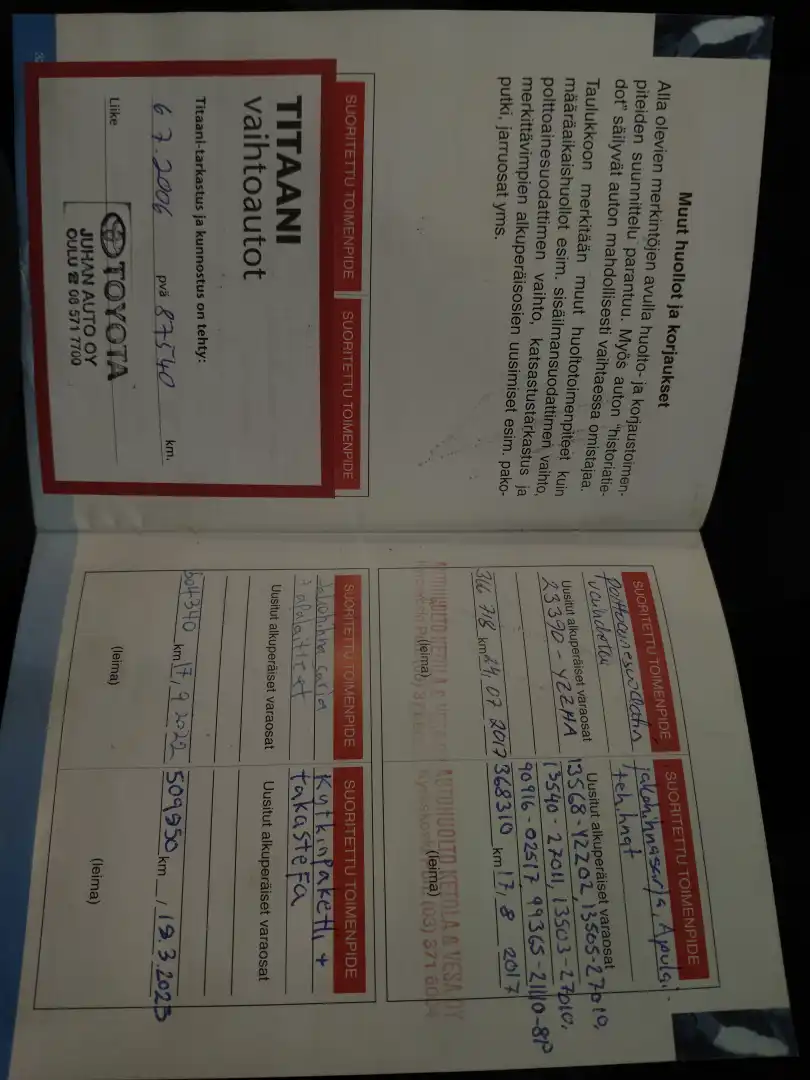 Muut huollot ja korjaukset
Alla olevien merkintöjen avulla huolto- ja korjaustoimen-
piteiden suunnittelu parantuu. Myös auton "historiatie-
dot" säilyvät auton mahdollisesti vaihtaessa omistajaa.
Taulukkoon merkitään muut huoltotoimenpiteet kuin
määräaikaishuollot esim. sisäilmansuodattimen vaihto,
polttoainesuodattimen vaihto, katsastustarkastus ja
merkittävimpien alkuperäisosien uusimiset esim. pako-
putki, jarruosat yms.
SUORITETTU TOIMENPIDE
SUORITETTU TOIMENPIDE
TITAANI
vaihtoautot
Titaani-tarkastus ja kunnostus on tehty:
6 7. 2006 pvä 87540 km.
Liike
TOYOTA
JUHAN AUTO OY
OULU ☎ 08 571 7700
SUORITETTU TOIMENPIDE
Polttoainesuodatin
vaihdettu
Uusitut alkuperäiset varaosat
23390-YZZHA
316 718 km 24.07 2017
(leima)
SUORITETTU TOIMENPIDE
jakohihnasarja, Apulai-
tehihnat
Uusitut alkuperäiset varaosat
13568-YZZ02, 13505-27010,
13540-27011, 13503-27010,
90916-02517 99365-21110-8P
368310 km 17, 8 2017
AUTOHUOLTO KETOLA & VESA OY
(leima)
SUORITETTU TOIMENPIDE
Jakohihna sarja
Uusitut alkuperäiset varaosat
504340 km 17, 9 2022
(leima)
SUORITETTU TOIMENPIDE
Kytkinpaketti +
takastefa
Uusitut alkuperäiset varaosat
509950 km , 19.3.2023
(leima)